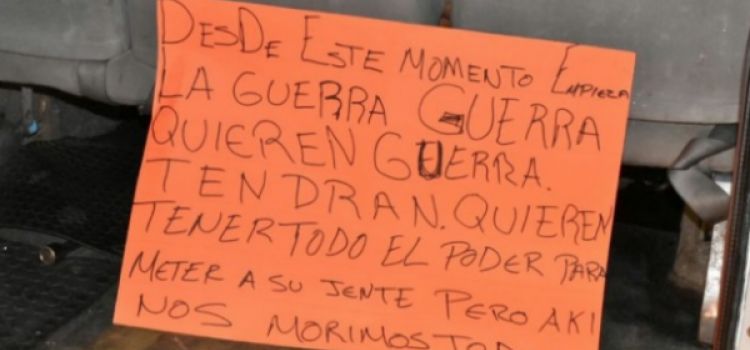 DESDE ESTE MOMENTO EMPIEZA
LA GUERRA GUERRA
QUIEREN GUERRA.
TENDRAN. QUIEREN
TENER TODO EL PODER PARA
METER A SU JENTE PERO AKI
NOS MORIMOS